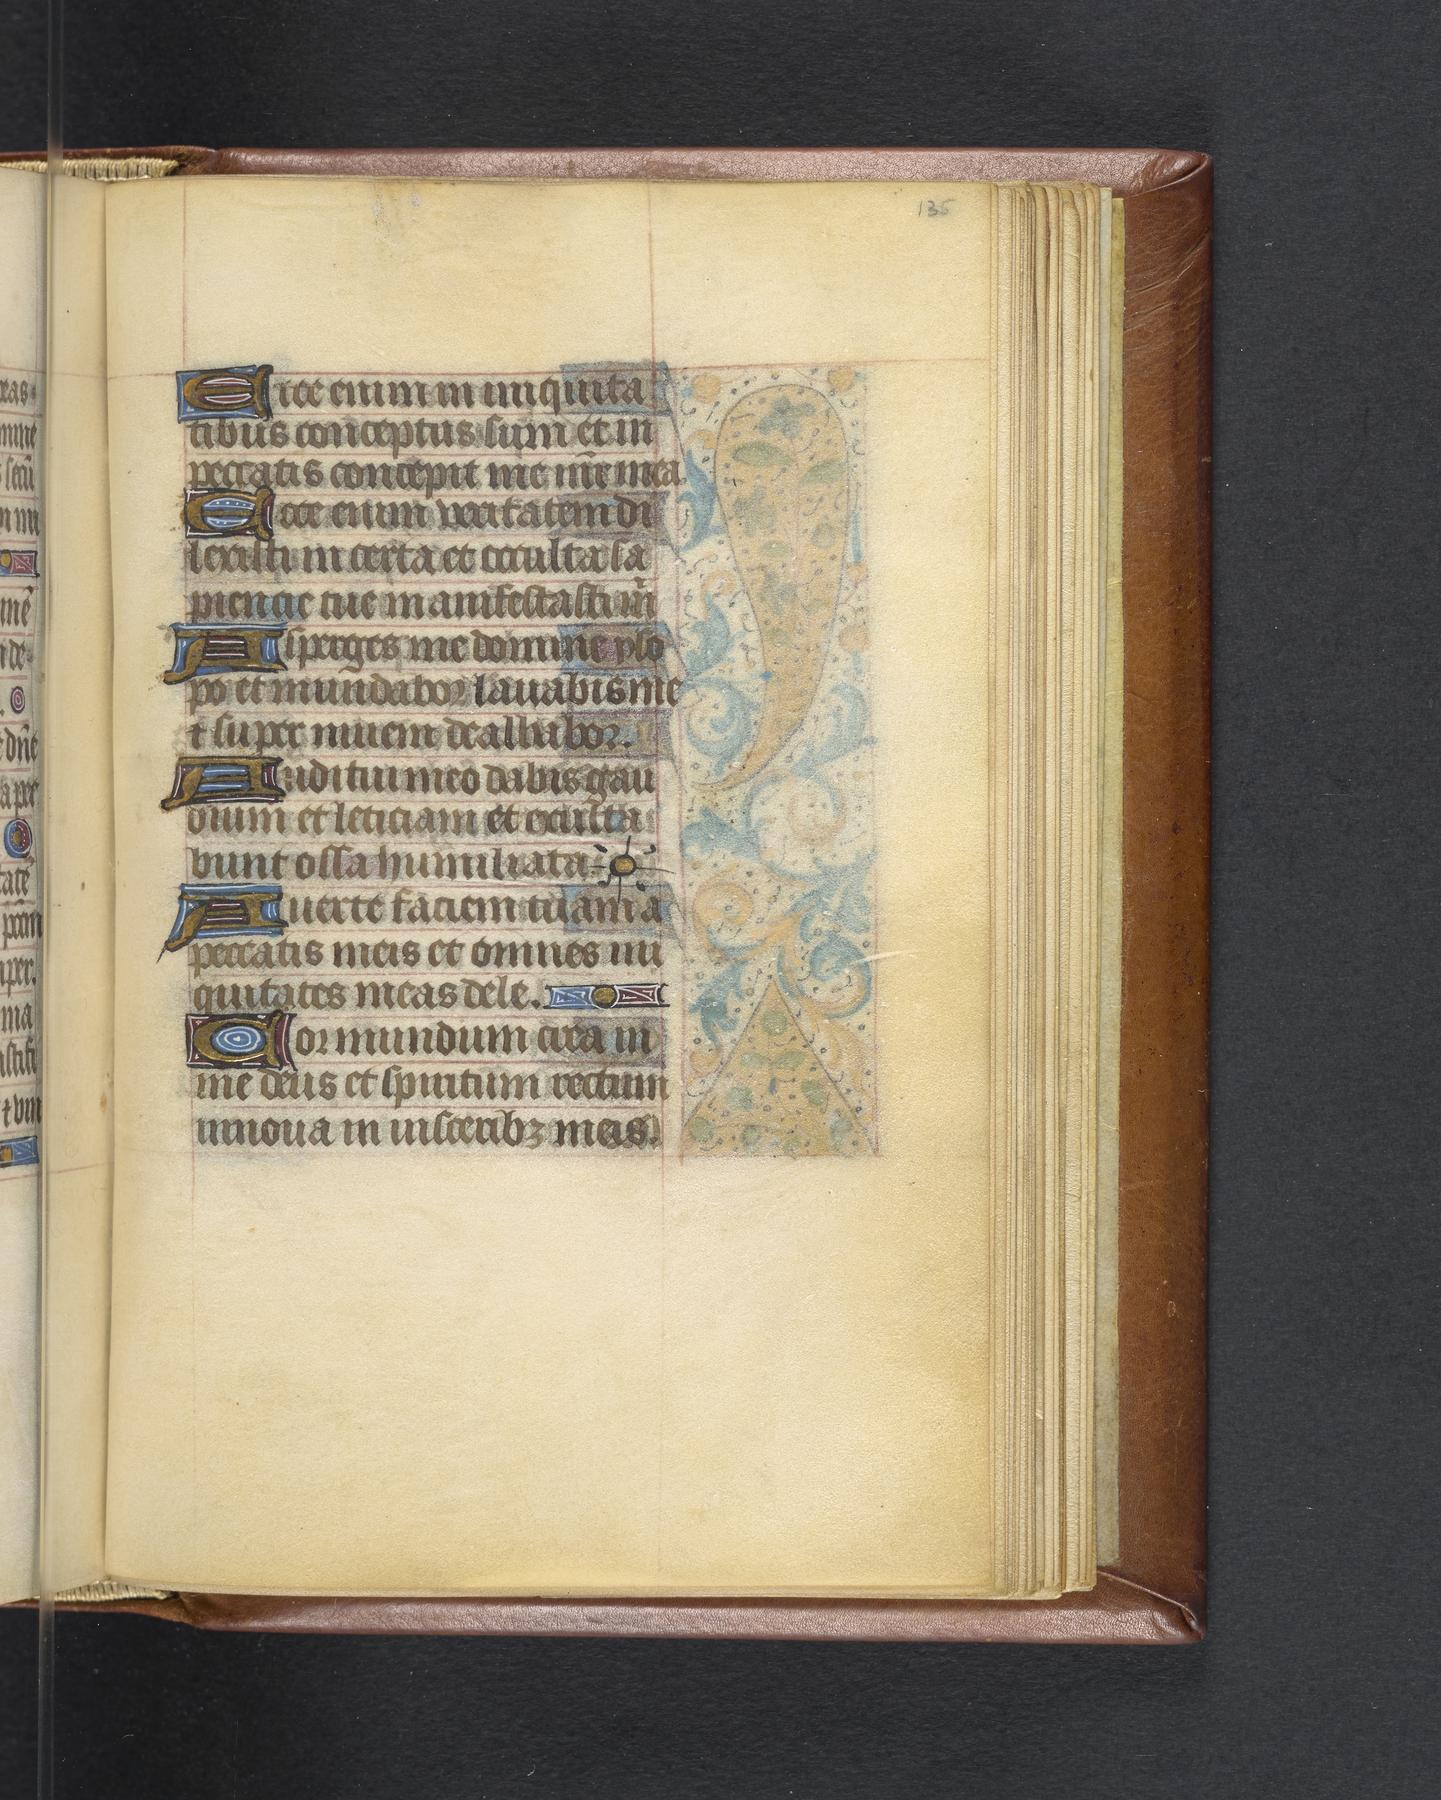 135
Ecce enim in iniquita
tibus conceptus sum et in
peccatis concepit me mr̄e mea
Ecce enim veritatem di
lexisti incerta et occulta sa
piencie tue manifestasti m̄
Asperges me domine yso
po et mundabor lauabis me
et super niuem dealbabor.
Auditui meo dabis gau
dium et leticiam et exulta
bunt ossa humiliata.
Auerte faciem tuam a
peccatis meis et omnes ini
quitates meas dele.
Cor mundum crea in
me deus et spiritum rectum
innoua in uisceribꝫ meis.